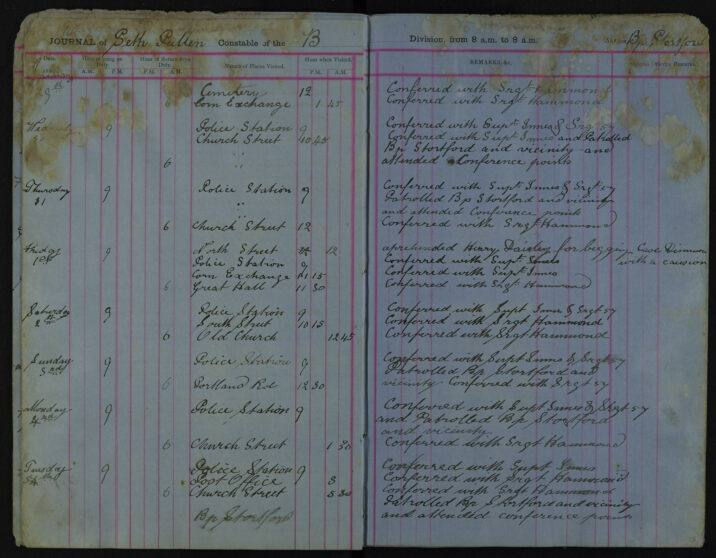 JOURNAL of Seth Pullen Constable of the B Division, from 8 a.m. to 8 a.m. Bp Stortford
Date. Hour of going on Duty. Hour of Return from Duty. Names of Places Visited. Hour when Visited. REMARKS, &c.
A.M. P.M. A.M. P.M. P.M. A.M.
Cemetery 12 Conferred with Srgt Hammond
6 Corn Exchange 1 45 Conferred with Srgt Hammond
9 Police Station 9 Conferred with Supt Innes & Srgt 57
Church Street 10 45 Conferred with Supt Innes and Patrolled
" Bp Stortford and vicinity and
6 attended Conference points
Thursday 9 Police Station 9 Conferred with Supt Innes & Srgt 57
31 " Patrolled Bp Stortford and vicinity
" and attended Conference points
6 Church Street 12 Conferred with Srgt Hammond
Friday 9 North Street 12 aprehended Henry for beging Case
1st Police Station 9 Conferred with Supt Innes with a causion
Corn Exchange 11 15 Conferred with Supt Innes
6 Great Hall 11 30 Conferred with Srgt Hammond
Saturday 9 Police Station 9 Conferred with Supt Innes & Srgt 57
2nd South Street 10 15 Conferred with Srgt Hammond
6 Old Church 12 45 Conferred with Srgt Hammond
Sunday 9 Police Station 9 Conferred with Supt Innes & Srgt 57
3rd Patrolled Bp Stortford and
6 Portland Rd 12 30 vicinity Conferred with Srgt 57
Monday 9 Police Station 9 Conferred with Supt Innes & Srgt 57
4th and Patrolled Bp Stortford
and vicinity
6 Church Street 1 30 Conferred with Srgt Hammond
Tuesday 9 Police Station 9 Conferred with Supt Innes
5th Post Office 3 Conferred with Srgt Hammond
6 Church Street 5 30 Conferred with Srgt Hammond
Bp Stortford Patrolled Bp Stortford and vicinity
and attended conference points